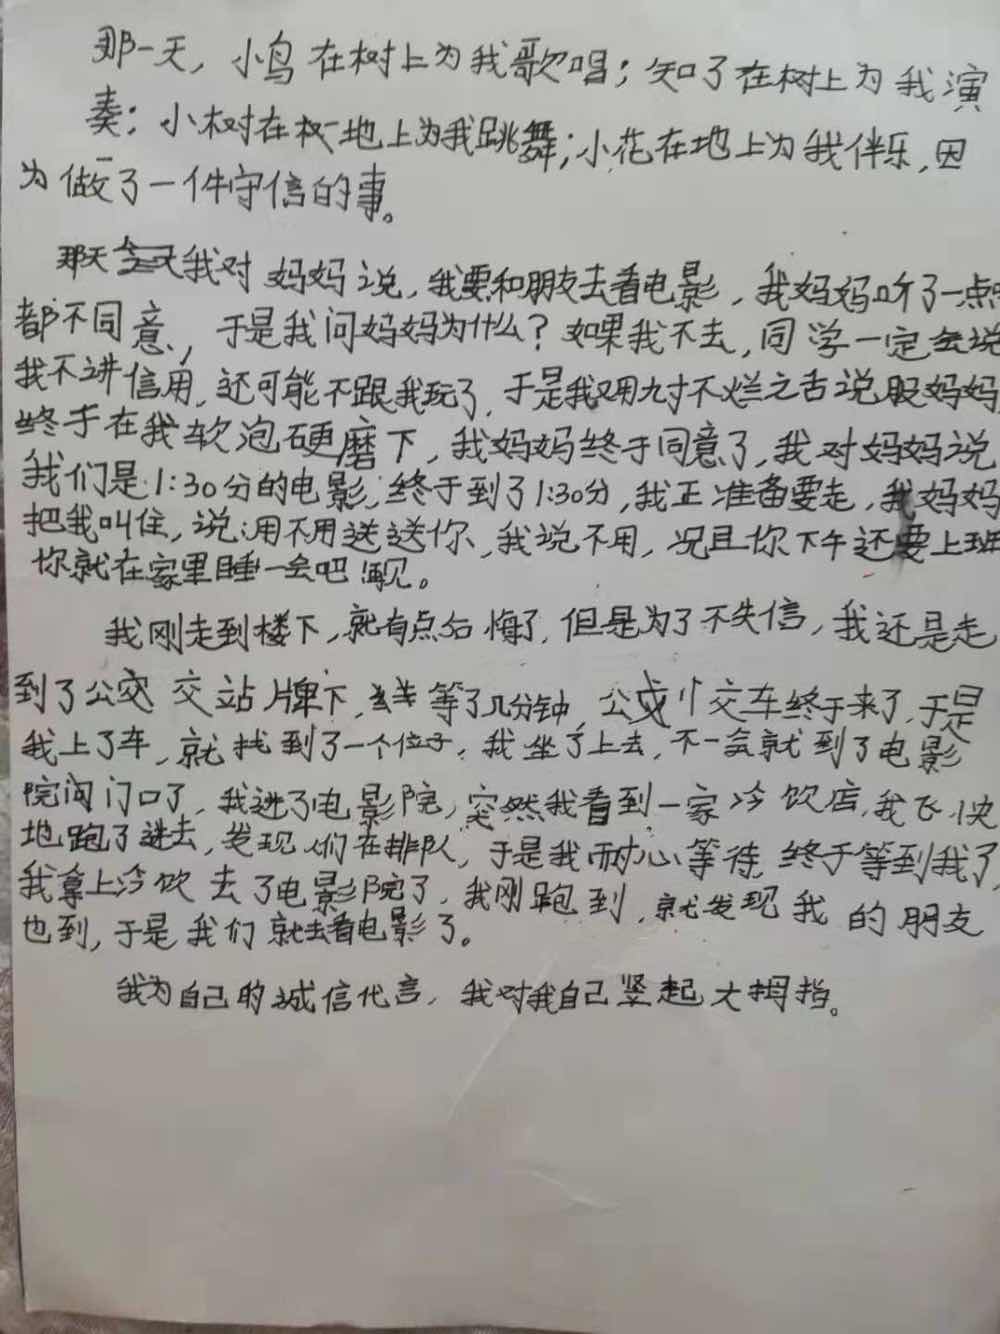 那一天，小鸟在树上为我歌唱；知了在树上为我演
奏；小树在地上为我跳舞；小花在地上为我伴乐，因
为做了一件守信的事。
那天我对妈妈说，我要和朋友去看电影，我妈妈听了一点
都不同意，于是我问妈妈为什么？如果我不去，同学一定会说
我不讲信用，还可能不跟我玩了，于是我用三寸不烂之舌说服妈妈
终于在我软泡硬磨下，我妈妈终于同意了，我对妈妈说
我们是1:30分的电影，终于到了1:30分，我正准备要走，我妈妈
把我叫住，说：用不用送送你，我说不用，况且你下午还要上班
你就在家里睡一会吧 再见。
我刚走到楼下，就有点后悔了，但是为了不失信，我还是走
到了公交站牌下，等了几分钟，公交车终于来了，于是
我上了车，就找到了一个位子，我坐了上去，不一会就到了电影
院门口了，我进了电影院，突然我看到一家冷饮店，我飞快
地跑了进去，发现人们在排队，于是我耐心等待，终于等到我了，
我拿上冷饮去了电影院了，我刚跑到，就发现我的朋友
也到，于是我们就去看电影了。
我为自己的诚信代言，我对我自己竖起大拇指。